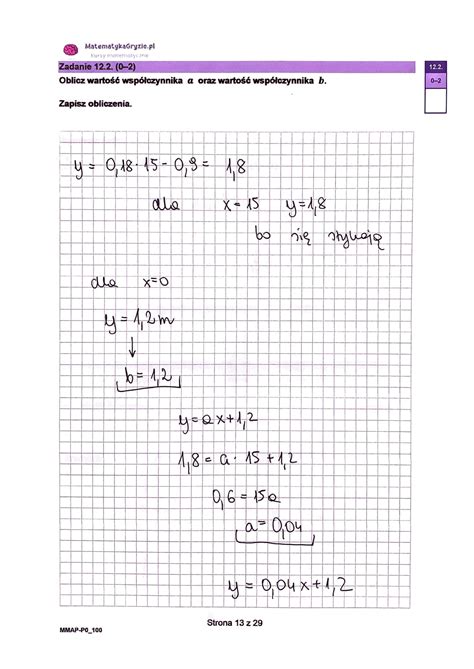 MatematykaGryzie.pl
Kursy matematyczne
Zadanie 12.2. (0–2)
12.2.
0–2
Oblicz wartość współczynnika a oraz wartość współczynnika b.
Zapisz obliczenia.
y = 0,18 · 15 – 0,9 = 1,8
dla x = 15 y = 1,8
bo się stykają
dla x=0
y = 1,2m
↓
b = 1,2
y = ax + 1,2
1,8 = a · 15 + 1,2
0,6 = 15a
a = 0,04
y = 0,04x + 1,2
Strona 13 z 29
MMAP-P0_100